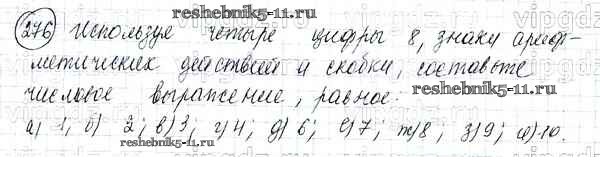 reshebnik5-11.ru
276 Используя четыре цифры 8, знаки ариф-
метических действий и скобки, составьте
числовое выражение, равное:
а) 1; б) 2; в) 3; г) 4; д) 6; е) 7; ж) 8; з) 9; и) 10.
reshebnik5-11.ru